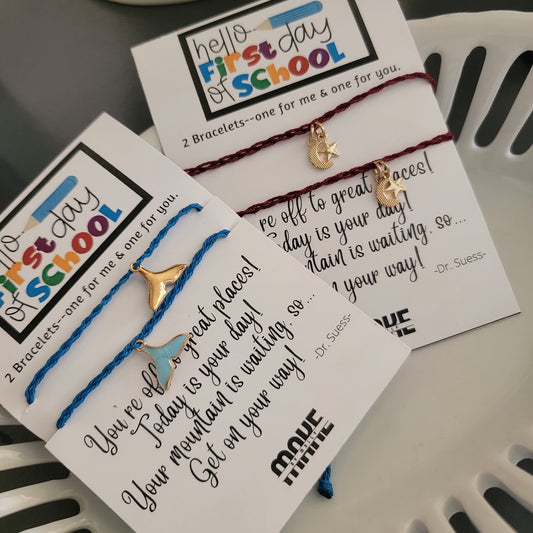 hello
First day
of SCHOOL
2 Bracelets--one for me & one for you.
're off to great places!
day is your day!
ountain is waiting, so...
on your way!
-Dr. Suess-
hello
First day
of SCHOOL
2 Bracelets--one for me & one for you.
You're off to great places!
Today is your day!
Your mountain is waiting, so...
Get on your way!
-Dr. Suess-